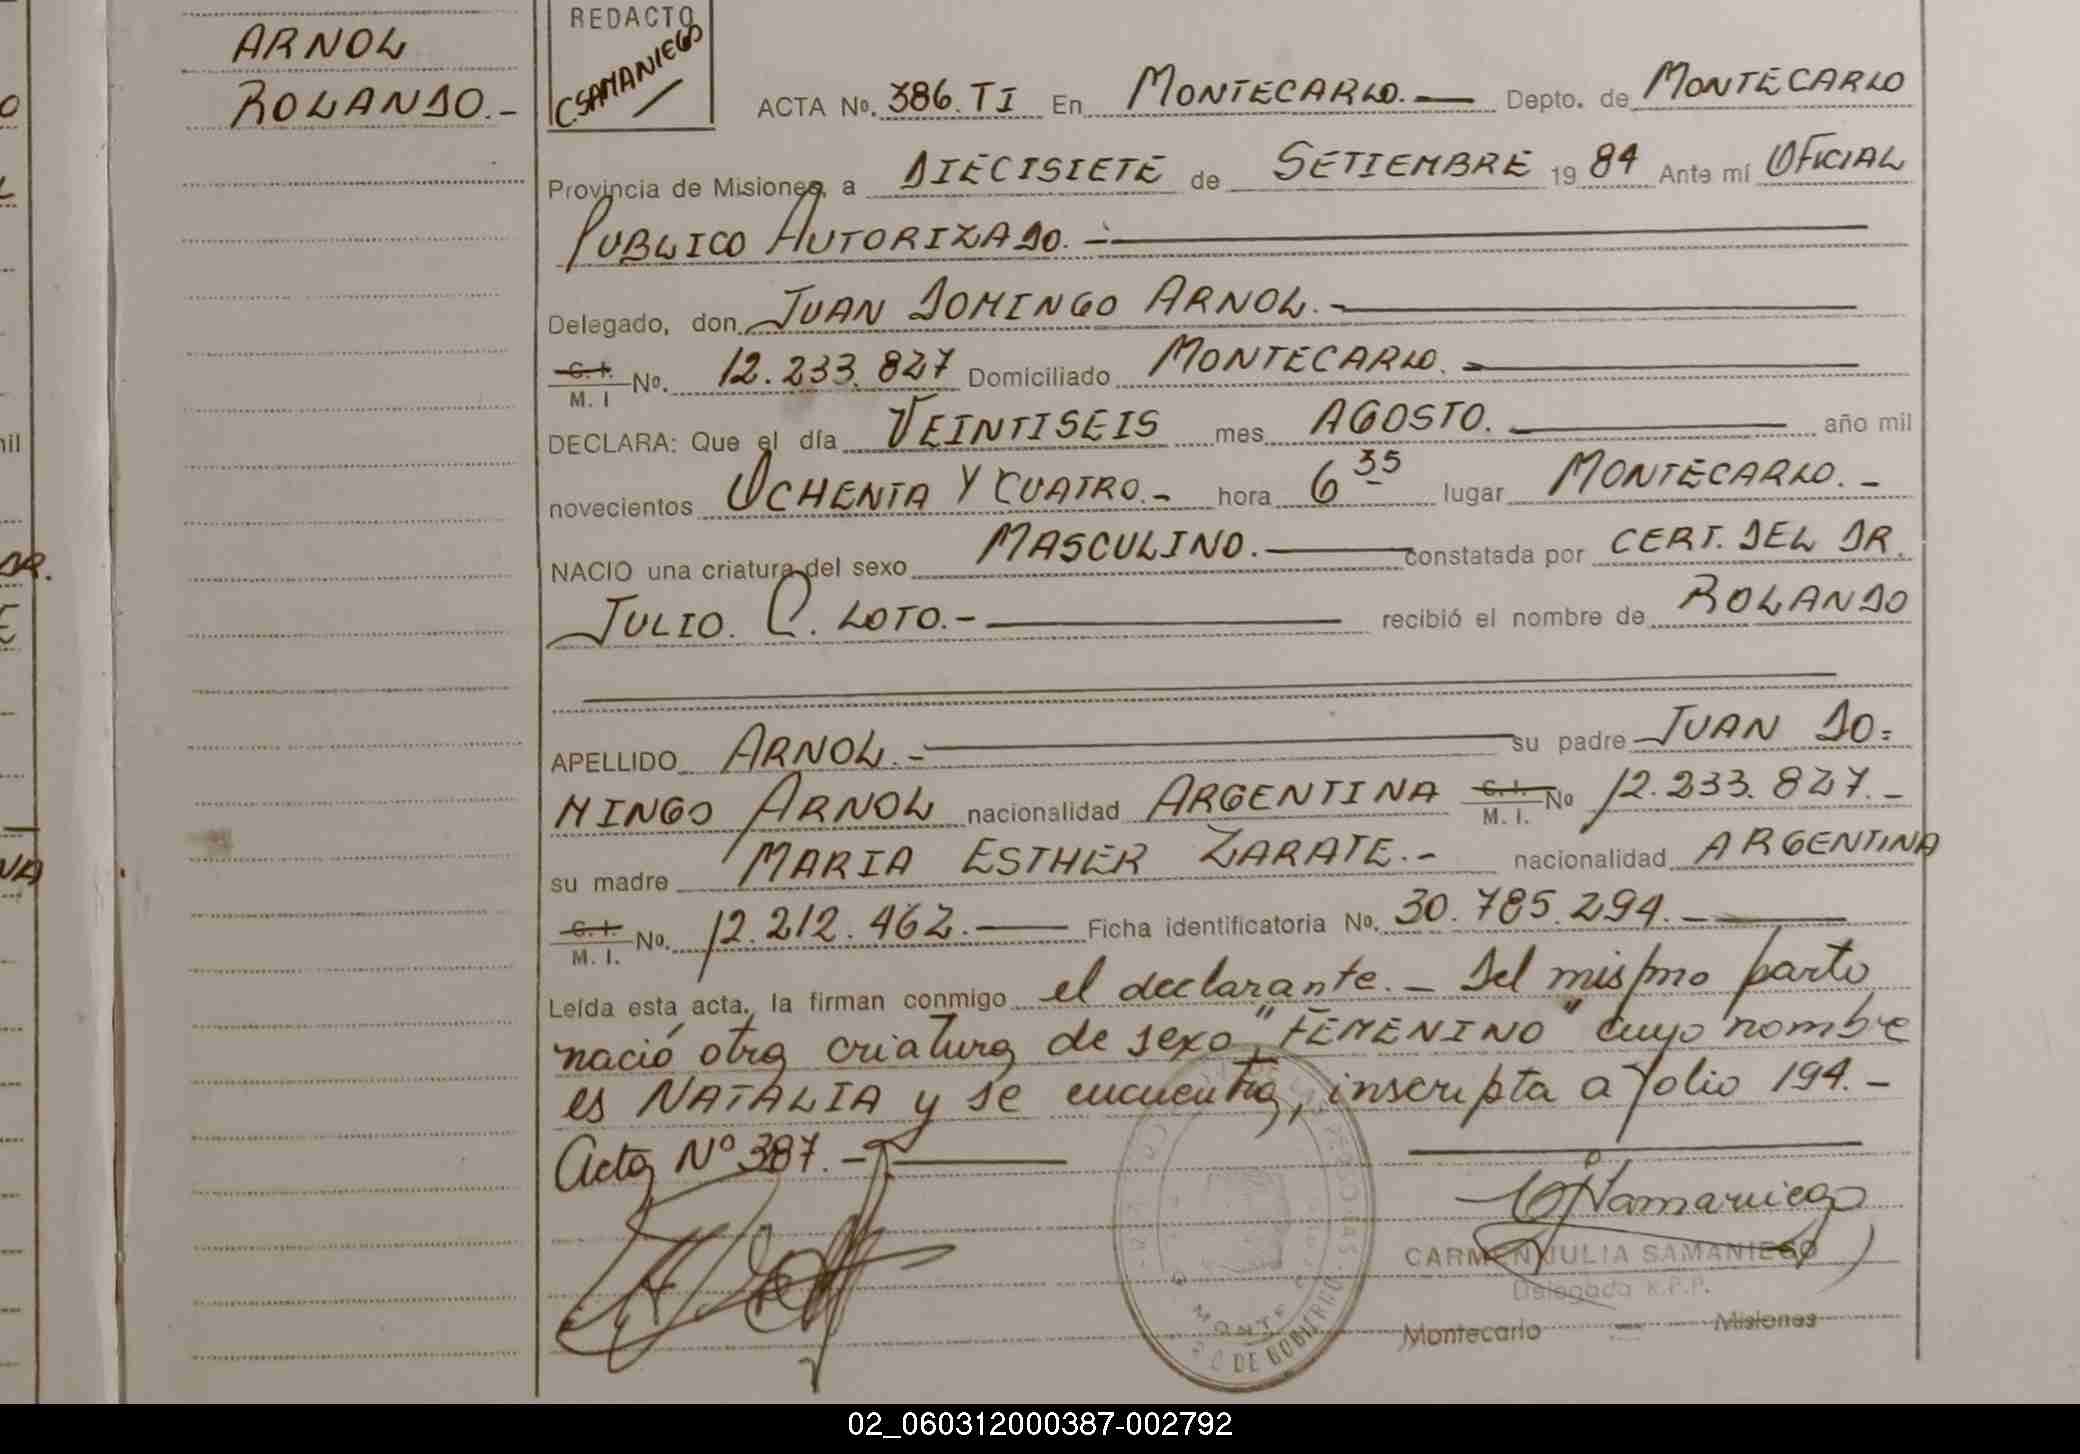 ARNOL
ROLANDO.-
REDACTO
C.SAMANIEGO
ACTA No. 386.TI En MONTECARLO.- Depto. de MONTECARLO
Provincia de Misiones, a DIECISIETE de SETIEMBRE 1984 Ante mí OFICIAL
PUBLICO AUTORIZADO.-
Delegado, don JUAN DOMINGO ARNOL.-
C. I. No. 12.233.827 Domiciliado MONTECARLO.
M. I
DECLARA: Que el día VEINTISEIS mes AGOSTO. año mil
novecientos OCHENTA Y CUATRO.- hora 6 35 lugar MONTECARLO.-
NACIO una criatura del sexo MASCULINO.- constatada por CERT. DEL DR.
JULIO. C. LOTO.- recibió el nombre de ROLANDO
APELLIDO ARNOL.- su padre JUAN DO=
MINGO ARNOL nacionalidad ARGENTINA C. I. No 12.233.827.-
M. I.
su madre MARIA ESTHER ZARATE.- nacionalidad ARGENTINA
C. I. No. 12.212.462.- Ficha identificatoria No. 30.785.294.-
M. I.
Leída esta acta, la firman conmigo el declarante.- Del mismo parto
nació otra criatura de sexo "FEMENINO" cuyo nombre
es NATALIA y se encuentra, inscripta a folio 194.-
Acta Nº 387.-
CJSamaniego
CARMEN JULIA SAMANIEGO
Delegada R.P.P.
Montecarlo - Misiones
DE GOBIERNO
02_060312000387-002792